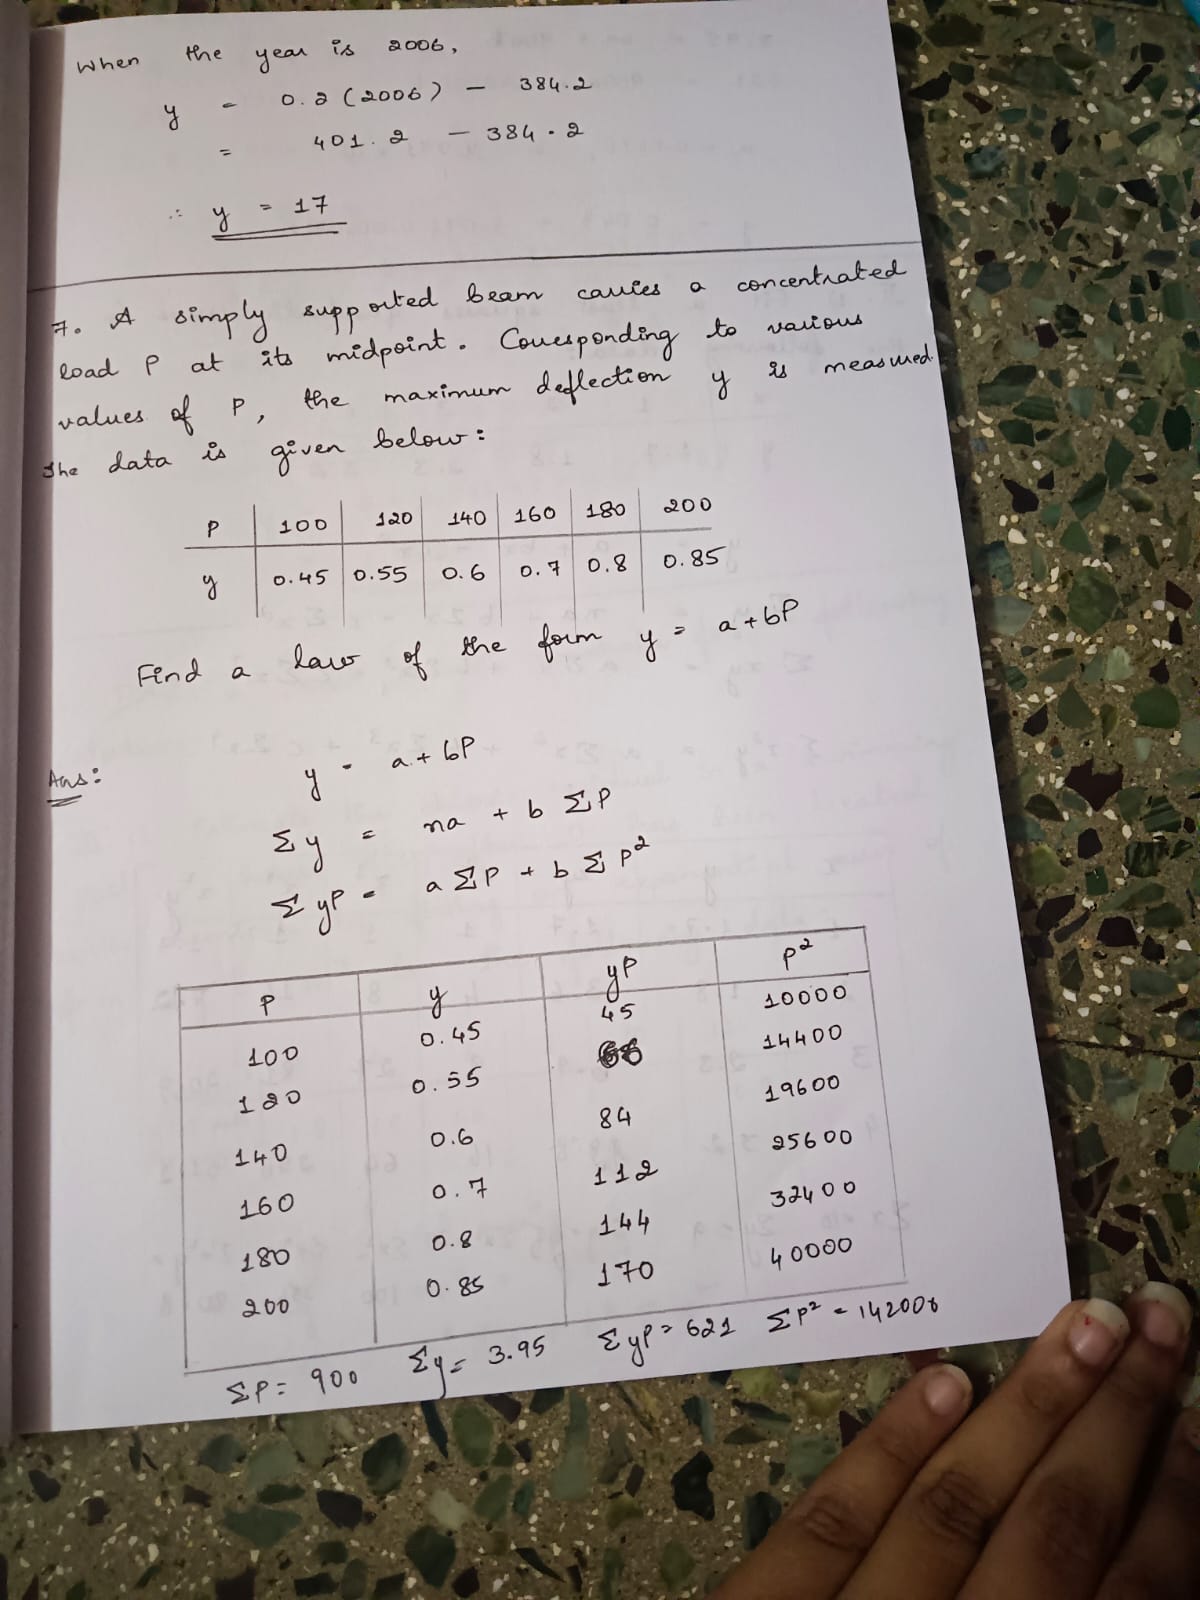 When the year is 2006,
y = 0.2 (2006) - 384.2
= 401.2 - 384.2
∴ y = 17
7. A simply supported beam carries a concentrated
load P at its midpoint. Corresponding to various
values of P, the maximum deflection y is measured.
The data is given below:
P 100 120 140 160 180 200
y 0.45 0.55 0.6 0.7 0.8 0.85
Find a law of the form y = a+bP
Ans: y = a + bP
Σy = na + b ΣP
ΣyP = a ΣP + b ΣP²
P y yP P²
100 0.45 45 10000
120 0.55 14400
140 0.6 84 19600
160 0.7 112 25600
180 0.8 144 32400
200 0.85 170 40000
ΣP = 900 Σy = 3.95 ΣyP = 621 ΣP² = 142000